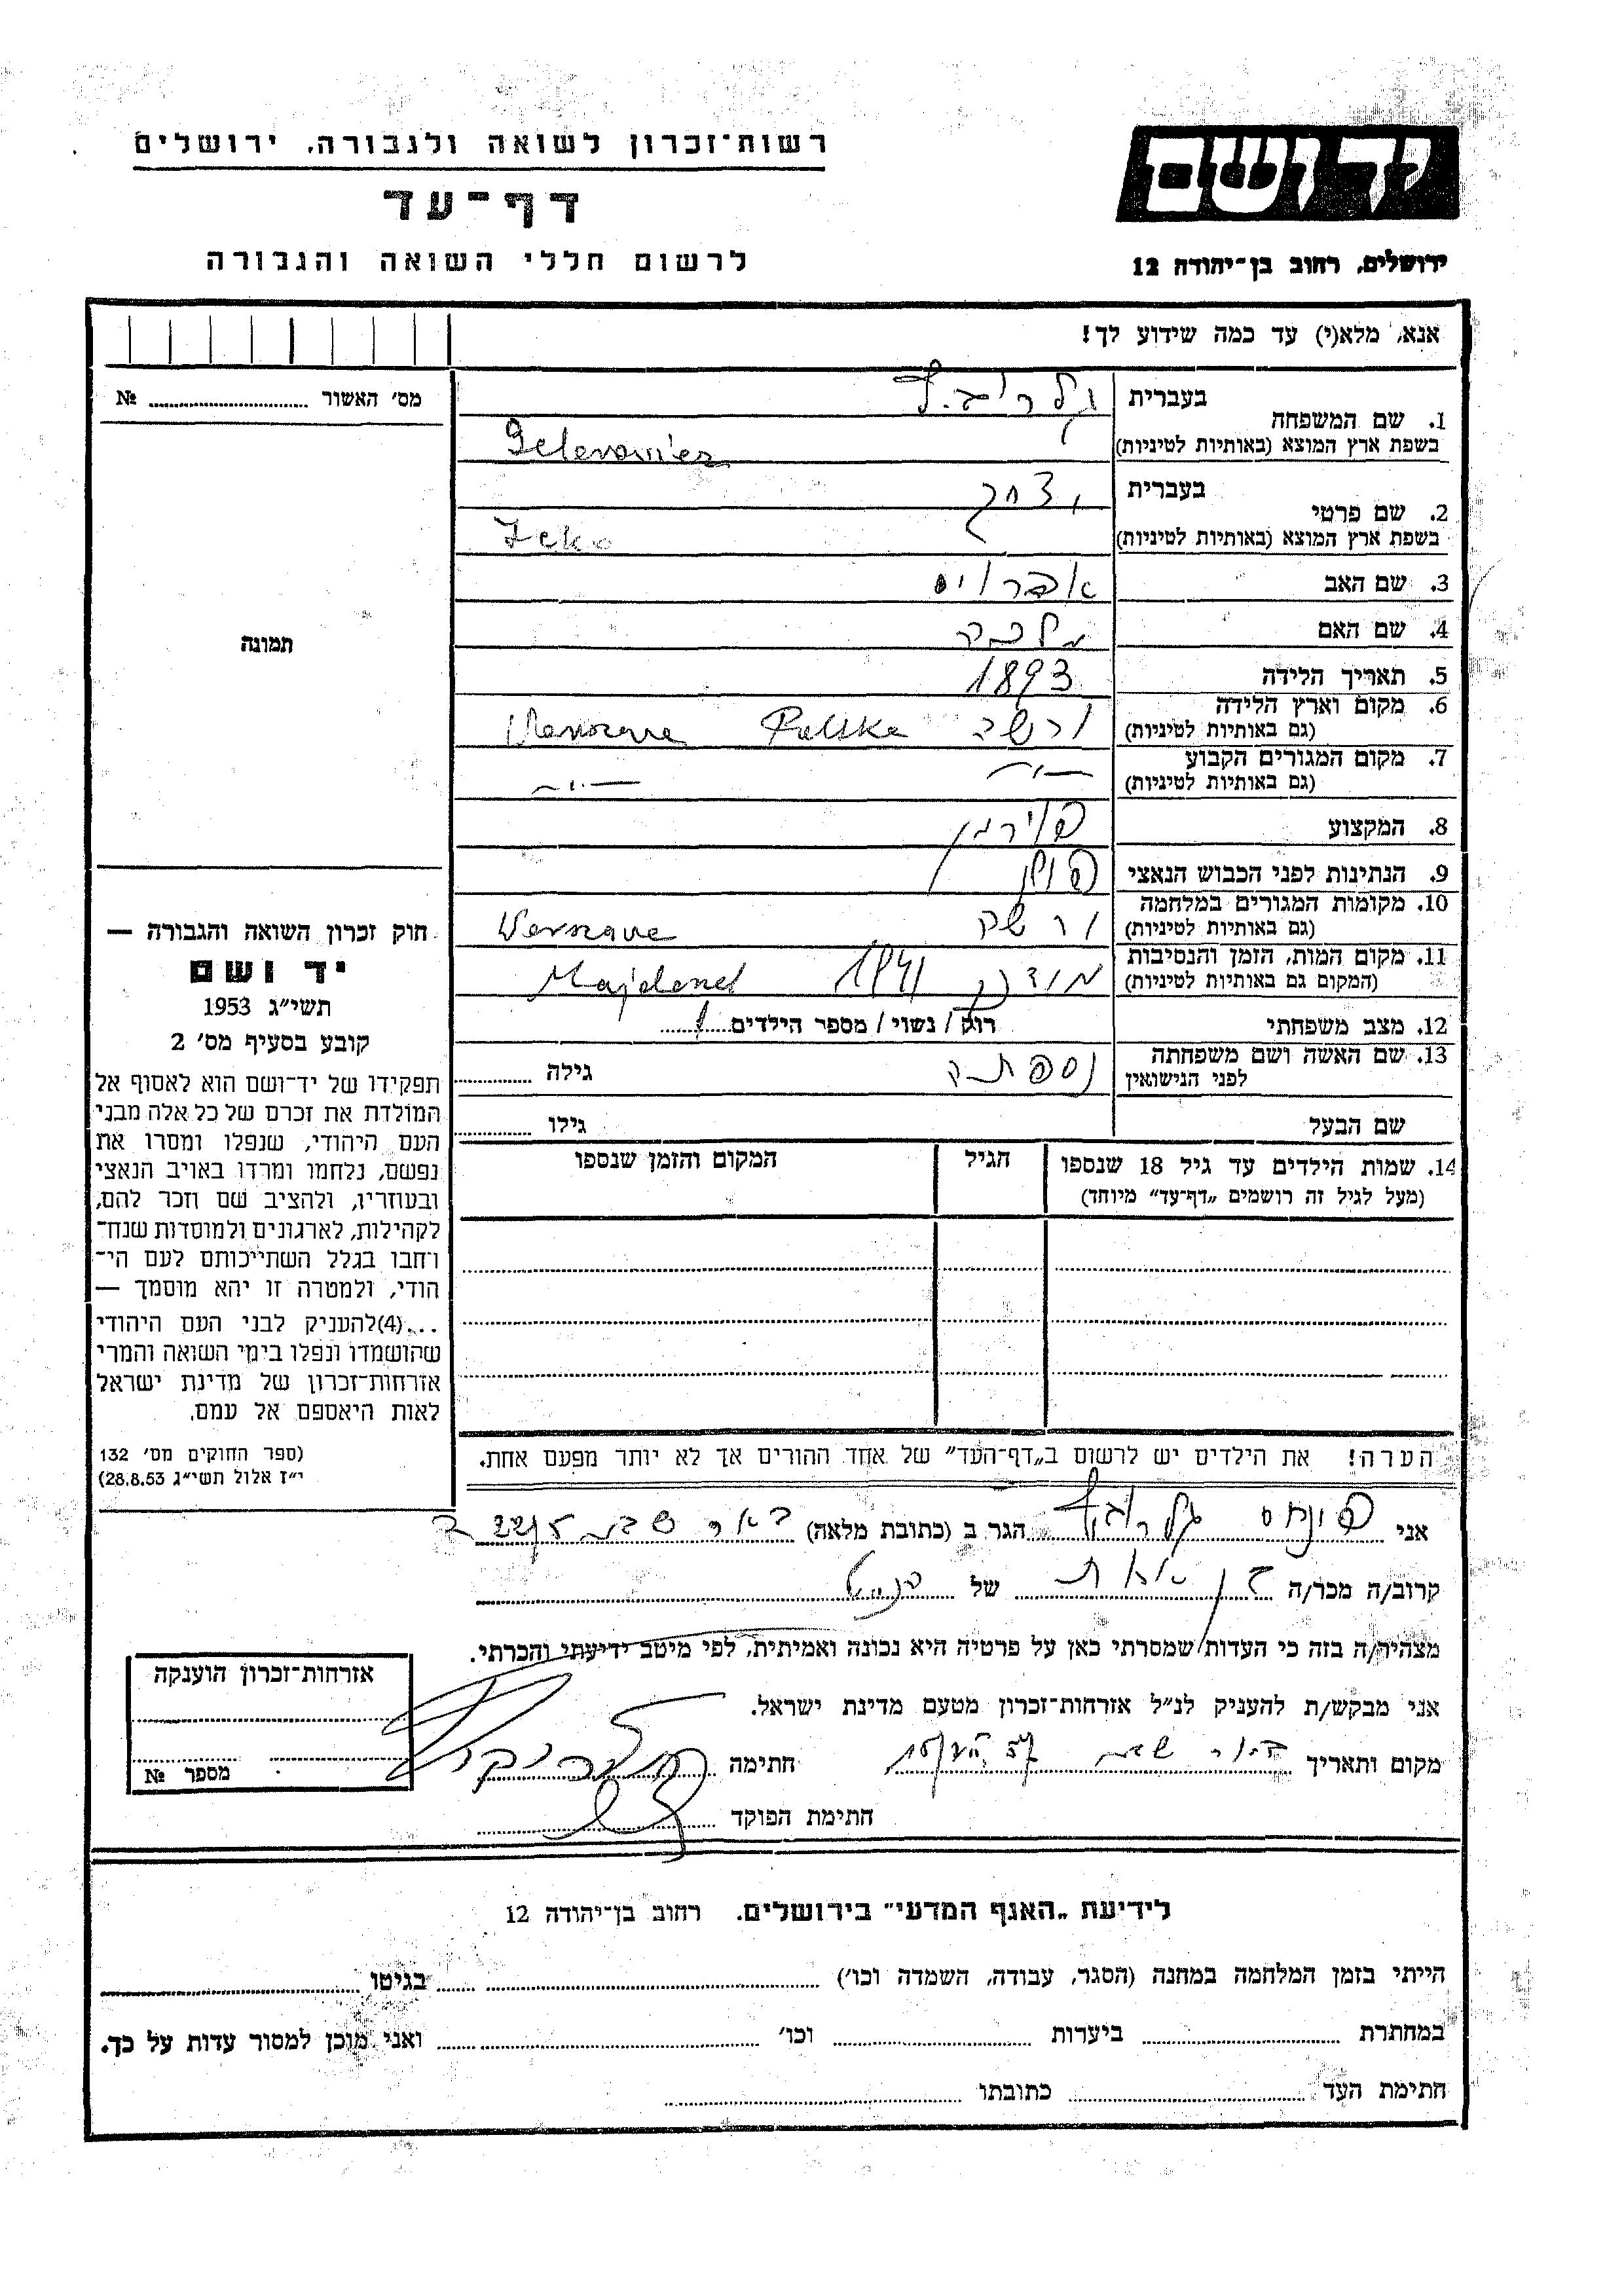 רשות־זכרון לשואה ולגבורה, ירושלים
דף־עד
לרשום חללי השואה והגבורה
יד ושם
ירושלים, רחוב בן־יהודה 12
אנא, מלא(י) עד כמה שידוע לך!
מס' האשור № ........
תמונה
1. שם המשפחה
בעברית
בשפת ארץ המוצא (באותיות לטיניות)
2. שם פרטי
בעברית יצחק
בשפת ארץ המוצא (באותיות לטיניות)
3. שם האב
4. שם האם מלכה
5. תאריך הלידה 1893
6. מקום וארץ הלידה ורשה Polska
(גם באותיות לטיניות)
7. מקום המגורים הקבוע
(גם באותיות לטיניות)
8. המקצוע
9. הנתינות לפני הכבוש הנאצי פולין
10. מקומות המגורים במלחמה ורשה
(גם באותיות לטיניות)
11. מקום המות, הזמן והנסיבות
(המקום גם באותיות לטיניות)
12. מצב משפחתי רווק / נשוי / מספר הילדים
13. שם האשה ושם משפחתה נספתה גילה ........
לפני הנישואין
שם הבעל גילו ........
14. שמות הילדים עד גיל 18 שנספו הגיל המקום והזמן שנספו
(מעל לגיל זה רושמים „דף־עד" מיוחד)
הערה! את הילדים יש לרשום ב„דף־העד" של אחד ההורים אך לא יותר מפעם אחת.
חוק זכרון השואה והגבורה —
יד ושם
תשי״ג 1953
קובע בסעיף מס' 2
תפקידו של יד־ושם הוא לאסוף אל
המולדת את זכרם של כל אלה מבני
העם היהודי, שנפלו ומסרו את
נפשם, נלחמו ומרדו באויב הנאצי
ובעוזריו, ולהציב שם וזכר להם,
לקהילות, לארגונים ולמוסדות שנח־
רחבו בגלל השתייכותם לעם הי־
הודי, ולמטרה זו יהא מוסמך —
...(4)להעניק לבני העם היהודי
שהושמדו ונפלו בימי השואה והמרי
אזרחות־זכרון של מדינת ישראל
לאות היאספם אל עמם.
(ספר החוקים מס' 132
י״ז אלול תשי״ג 28.8.53)
אני פינחס הגר ב (כתובת מלאה) באר שבע
קרוב/ה מכר/ה של
מצהיר/ה בזה כי העדות שמסרתי כאן על פרטיה היא נכונה ואמיתית, לפי מיטב ידיעתי והכרתי.
אני מבקש/ת להעניק לנ״ל אזרחות־זכרון מטעם מדינת ישראל.
מקום ותאריך באר שבע חתימה
חתימת הפוקד
אזרחות־זכרון הוענקה
מספר №
לידיעת „האגף המדעי" בירושלים. רחוב בן־יהודה 12
הייתי בזמן המלחמה במחנה (הסגר, עבודה, השמדה וכו') ........ בגיטו ........
במחתרת ........ ביערות ........ וכו' ........ ואני מוכן למסור עדות על כך.
חתימת העד ........ כתובתו ........